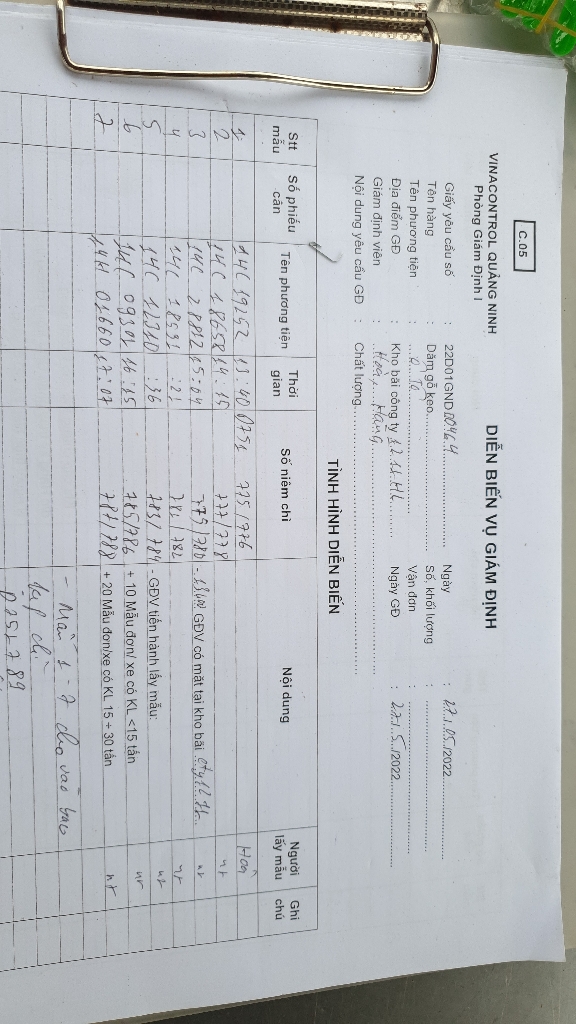 C.05
VINACONTROL QUẢNG NINH
Phòng Giám Định I
DIỄN BIẾN VỤ GIÁM ĐỊNH
Giấy yêu cầu số : 22D01GND00464 Ngày : 27/.05/2022
Tên hàng : Dăm gỗ keo Số, khối lượng :
Tên phương tiện : Ô Tô Vận đơn :
Địa điểm GĐ : Kho bãi công ty Ngày GĐ : 27/.5./2022
Giám định viên : Hoà, Hang
Nội dung yêu cầu GĐ : Chất lượng
TÌNH HÌNH DIỄN BIẾN
Stt mẫu Số phiếu cân Tên phương tiện Thời gian Số niêm chì Nội dung Người lấy mẫu Ghi chú
1 14C 19252 13:40 0751 775/776 Hoà
2 14C 18658 14:15 777/778 nt
3 14C 28812 15:04 779/780 - GĐV có mặt tại kho bãi nt
4 14C 18531 :21 781/782 nt
5 14C 12310 :36 783/784 - GĐV tiến hành lấy mẫu: nt
6 14C 09301 16:15 785/786 + 10 Mẫu đơn/ xe có KL <15 tấn nt
7 14H 01660 17:07 787/788 + 20 Mẫu đơn/xe có KL 15 ÷ 30 tấn nt
- Mẫu 1 - 7 cho vào bao
kẹp chì
789